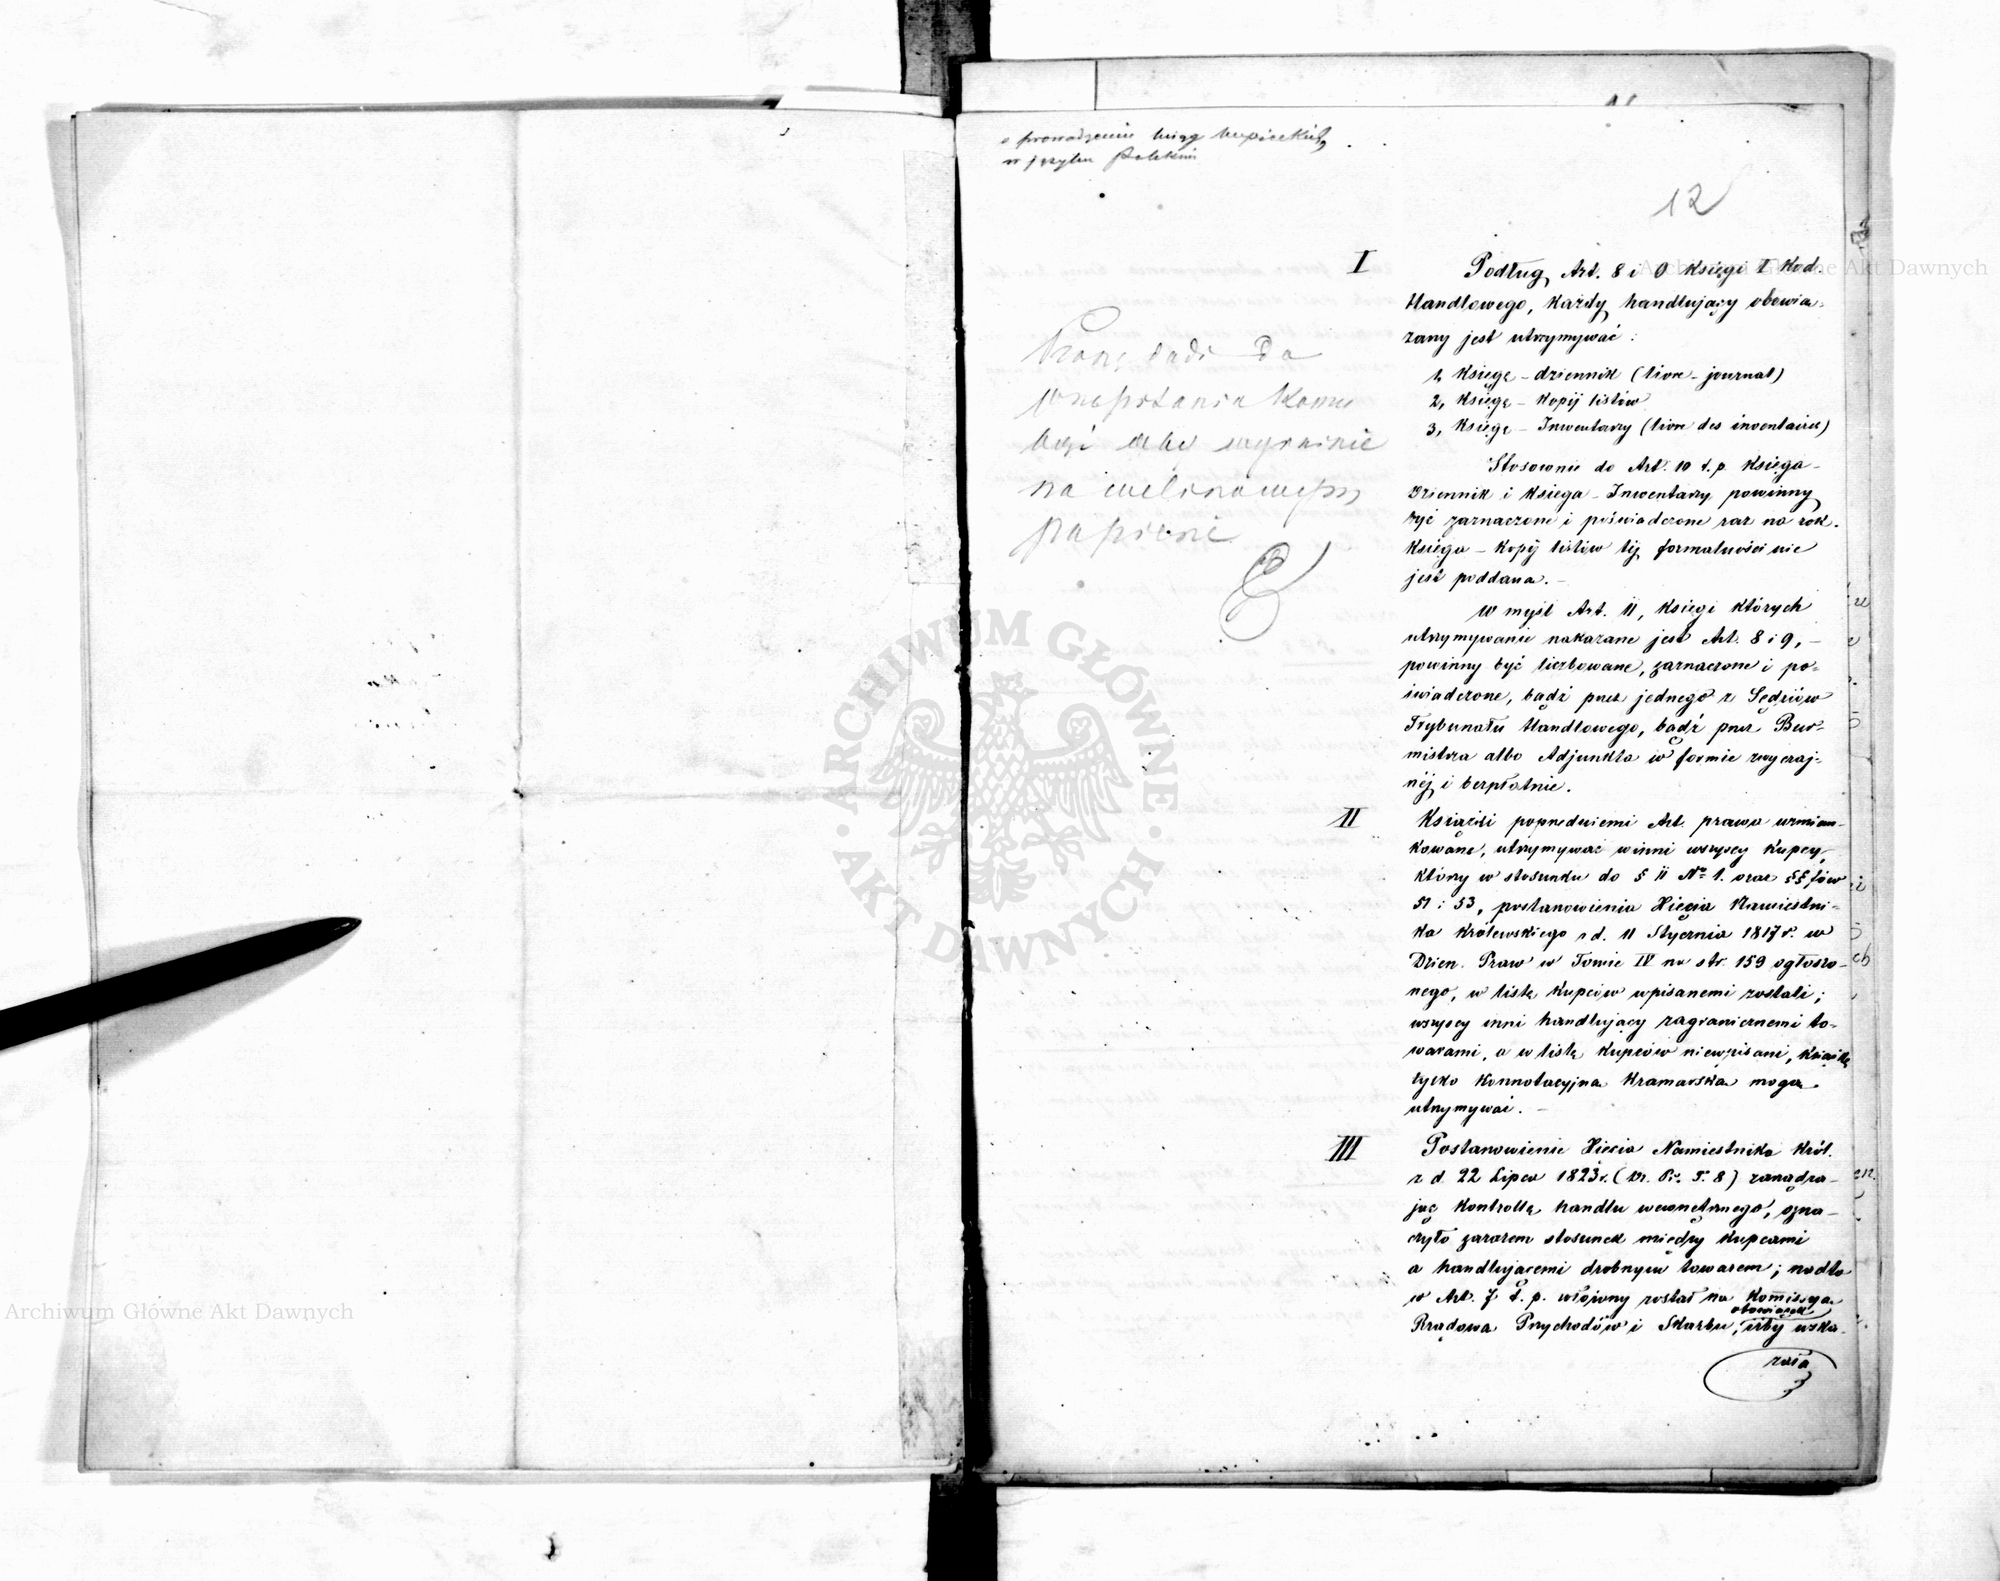 o prowadzeniu ksiąg kupieckich
w języku polskim
12
I
Podług Art. 8 i 9 Księgi I Kod.
Handlowego, każdy handlujący obowią-
zany jest utrzymywać:
1, Księgę – dziennik (livre – journal)
2, Księgę – Kopij listów
3, Księgę – Inwentarzy (livre des inventaires)
Stosownie do Art. 10 t. p. Księga –
Dziennik i Księga – Inwentarzy powinny
być zaznaczone i poświadczone raz na rok.
Księga – Kopij listów tej formalności nie
jest poddana. –
W myśl Art. 11, Księgi których
utrzymywanie nakazane jest Art. 8 i 9, –
powinny być liczbowane, zaznaczone i po-
świadczone, bądź przez jednego z Sędziów
Trybunału Handlowego, bądź przez Bur-
mistrza albo Adjunkta w formie zwyczaj-
nej i bezpłatnie.
II
Książki poprzedniemi Art. prawa wzmian-
kowane, utrzymywać winni wszyscy Kupcy,
którzy w stosunku do § 11 No 1. oraz §§ fów
51 i 53, postanowienia Xięcia Namiestni-
ka Królewskiego z d. 11 Stycznia 1817 r. w
Dzien. Praw w Tomie IV na str. 159 ogłoszo-
nego, w listę Kupców wpisanemi zostali;
wszyscy inni handlujący zagranicznemi to-
warami, a w listę Kupców niewpisani, Książkę
tylko Konnotacyjną Kramarską mogą
utrzymywać. –
III
Postanowienie Xięcia Namiestnika Król.
z d. 22 Lipca 1823 r. (Dz. Pr. T. 8) zarządza-
jąc Kontrollę handlu wewnętrznego, ozna-
czyło zarazem stosunek między Kupcami
a handlującemi drobnym towarem; nadto
w Art. 7 t. p. włożony został na Komissyą
obowiązek
Rządową Przychodów i Skarbu, iżby wska-
zała
na
papierze
ARCHIWUM GŁÓWNE · AKT DAWNYCH ·
Archiwum Główne Akt Dawnych
Archiwum Główne Akt Dawnych